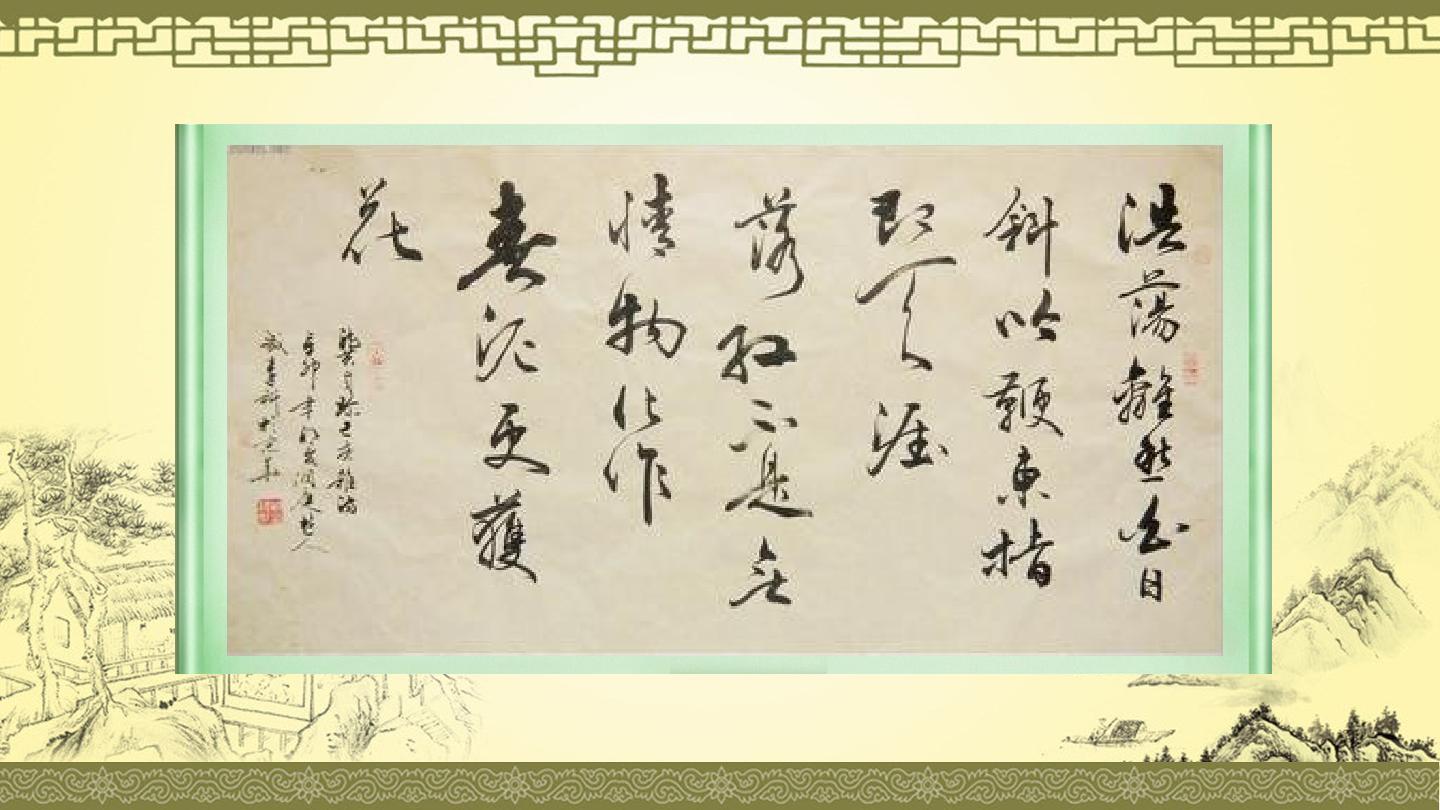 浩蕩離愁白日
斜吟鞭東指
即天涯
落紅不是无
情物化作
春泥更護
花
龔自珍己亥雜詩
辛卯年初夏